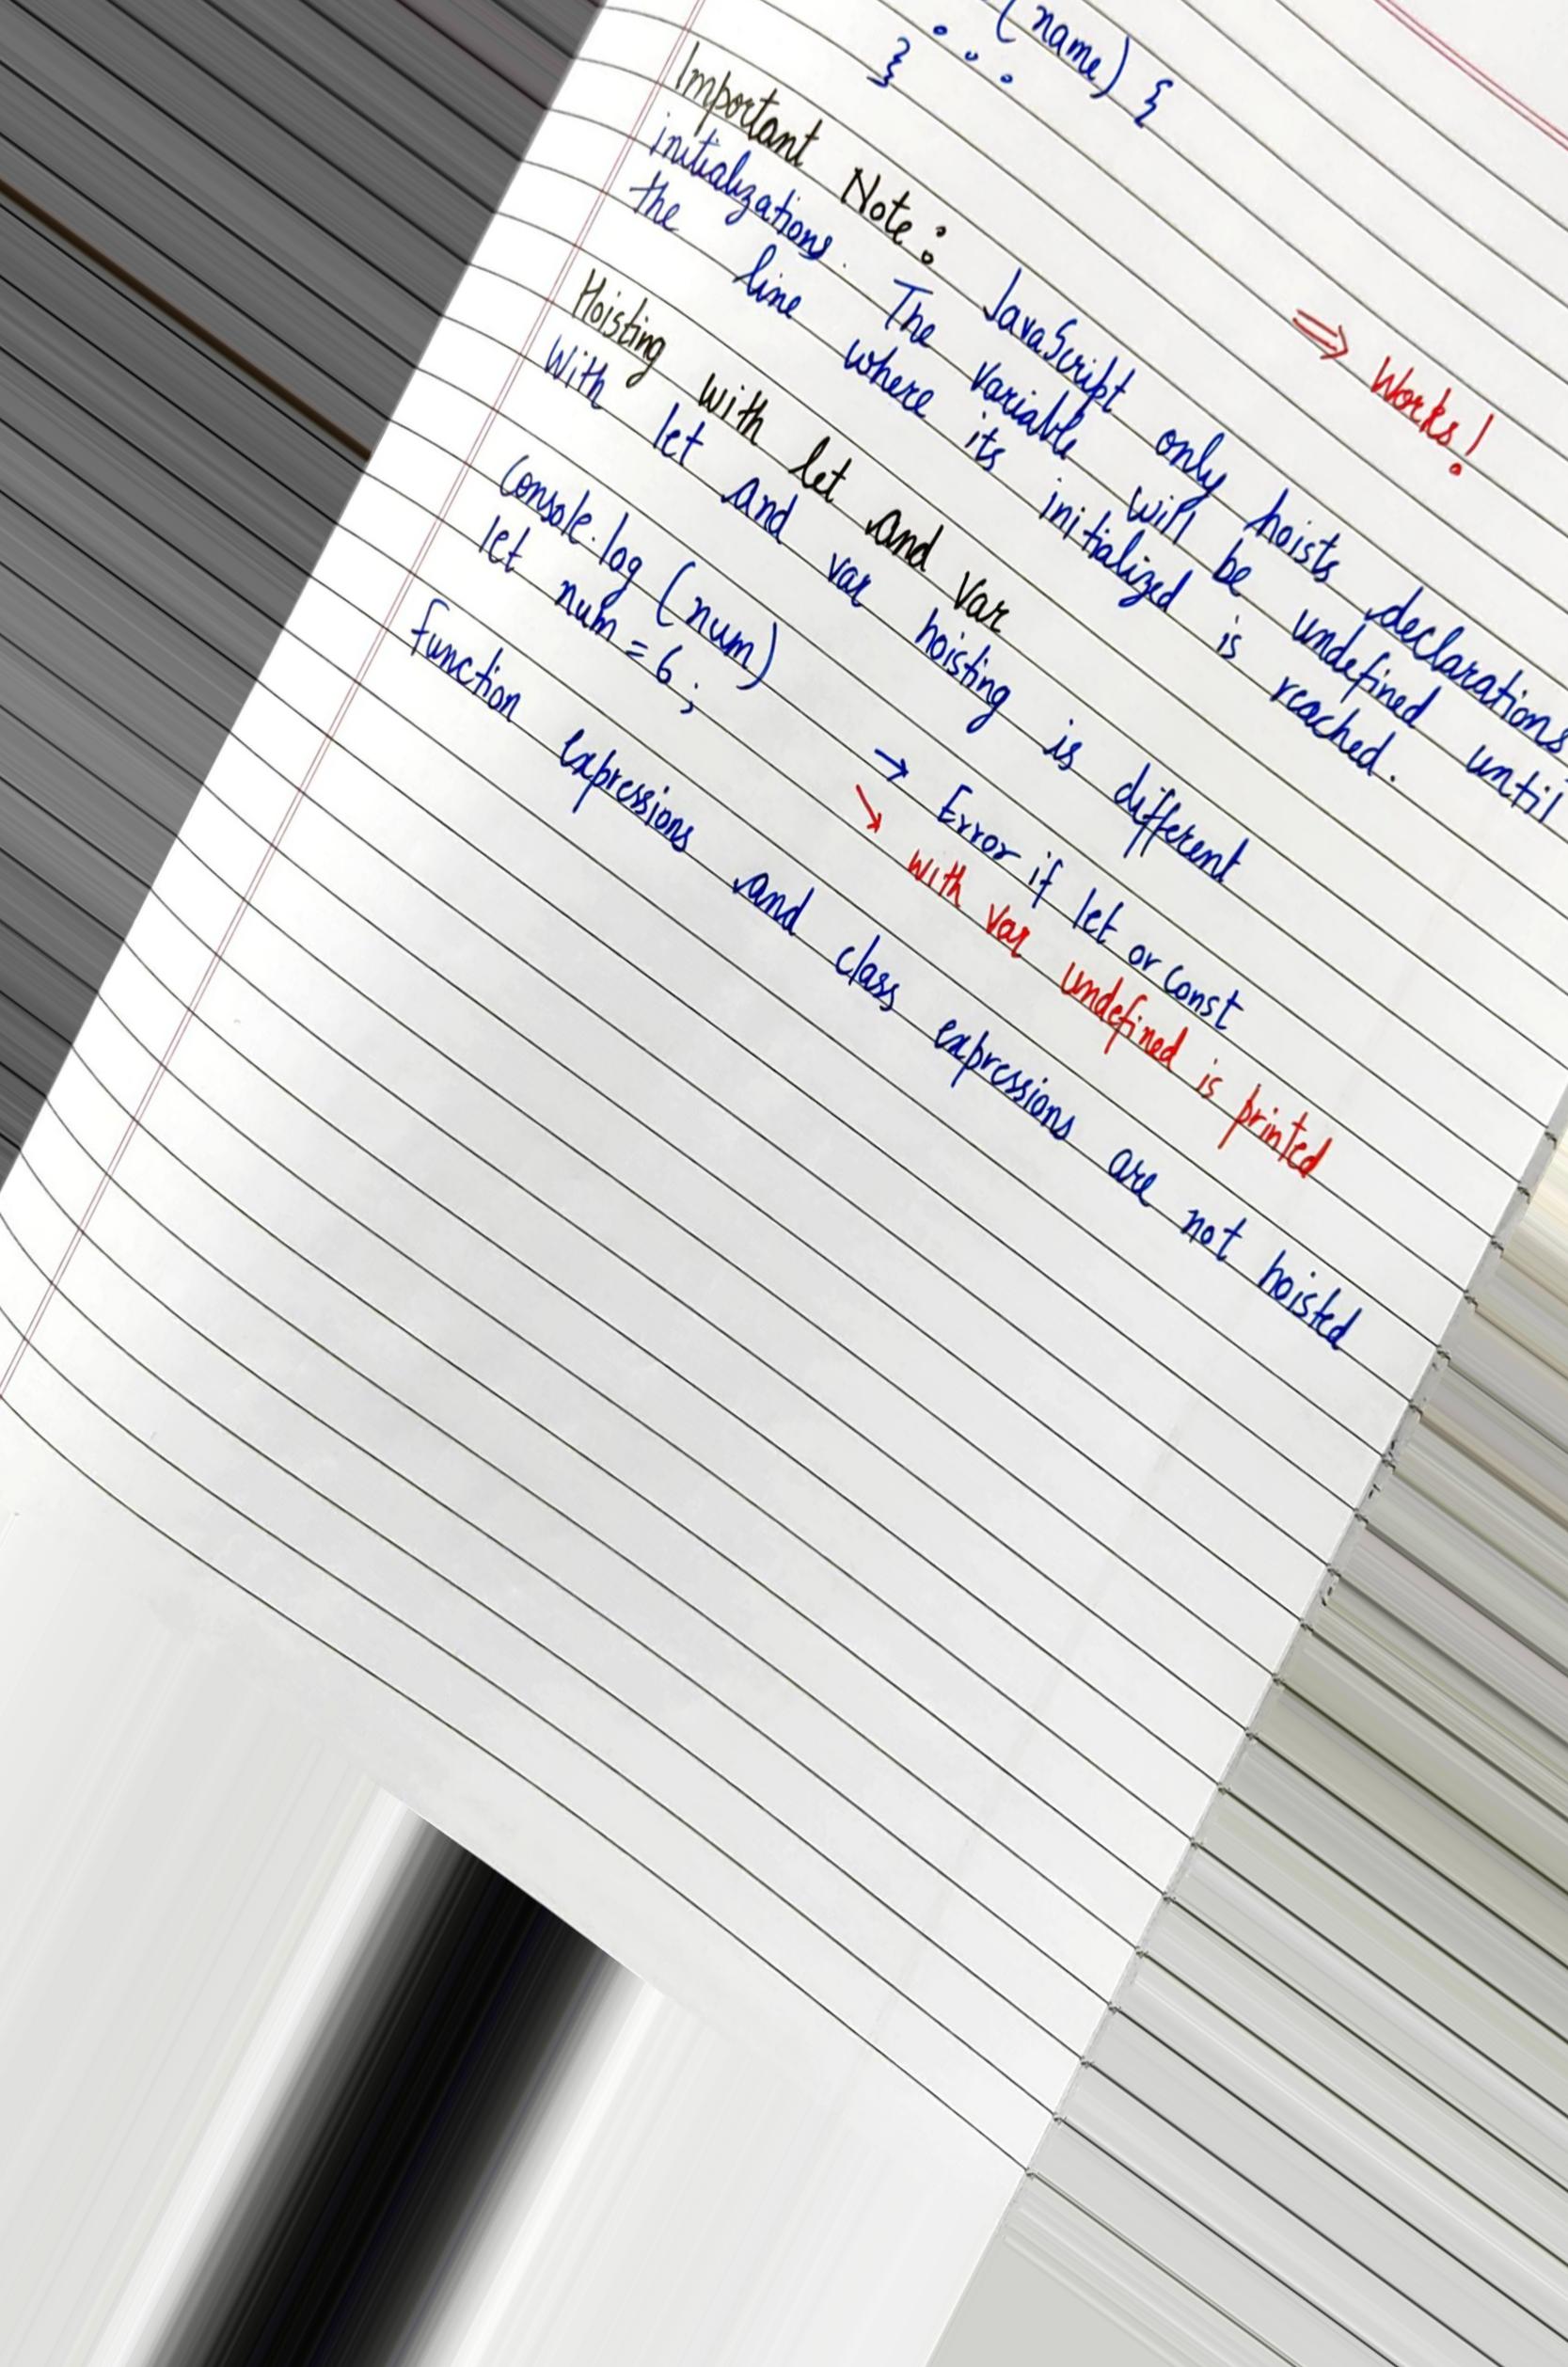 (name) {
. . .
}
⇒ Works!
Important Note: JavaScript only hoists declarations
initializations. The variable will be undefined until
the line where its initialized is reached.
Hoisting with let and var
With let and var hoisting is different
Console.log (num) → Error if let or const
let num = 6; ↘ with var undefined is printed
Function expressions and class expressions are not hoisted